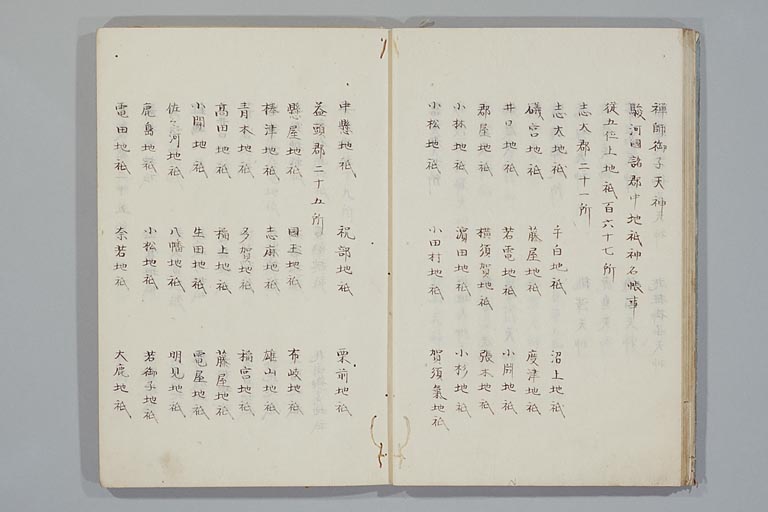 禪師御子天神
駿河國諸郡中地祇神名帳事
從五位上地祇百六十七所
志太郡二十一所
志太地祇 手白地祇 沼上地祇
礒宮地祇 藤屋地祇 度津地祇
井口地祇 若電地祇 小開地祇
郡屋地祇 横須賀地祇 張本地祇
小林地祇 濱田地祇 小杉地祇
小松地祇 小田村地祇 賀須氣地祇
中縣地祇 祝部地祇 栗前地祇
益頭郡二十五所
懸屋地祇 國玉地祇 布岐地祇
榛津地祇 志麻地祇 雄山地祇
青木地祇 多賀地祇 稲宮地祇
髙田地祇 福上地祇 藤屋地祇
小開地祇 生田地祇 電屋地祇
佐々河地祇 八幡地祇 明見地祇
鹿島地祇 小松地祇 若御子地祇
電田地祇 奈若地祇 大鹿地祇